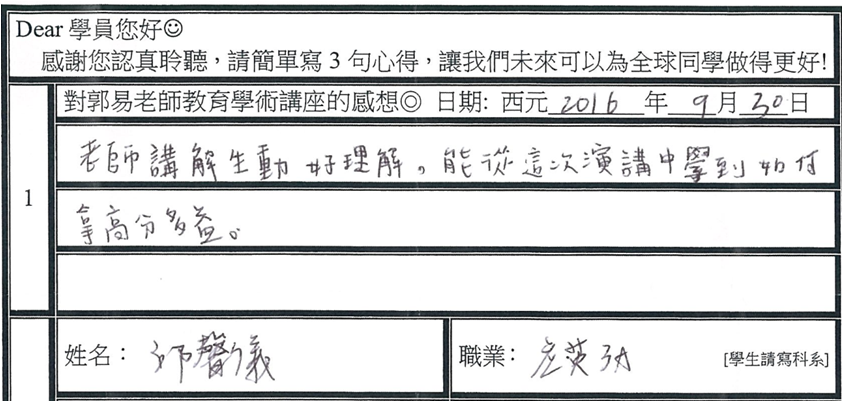 Dear 學員您好☺
感謝您認真聆聽，請簡單寫 3 句心得，讓我們未來可以為全球同學做得更好!
對郭易老師教育學術講座的感想◎ 日期: 西元 2016 年 9 月 30 日
1
老師講解生動好理解。能從這次演講中學到如何
拿高分多益。
姓名： 邱馨儀
職業： 應英弘 [學生請寫科系]